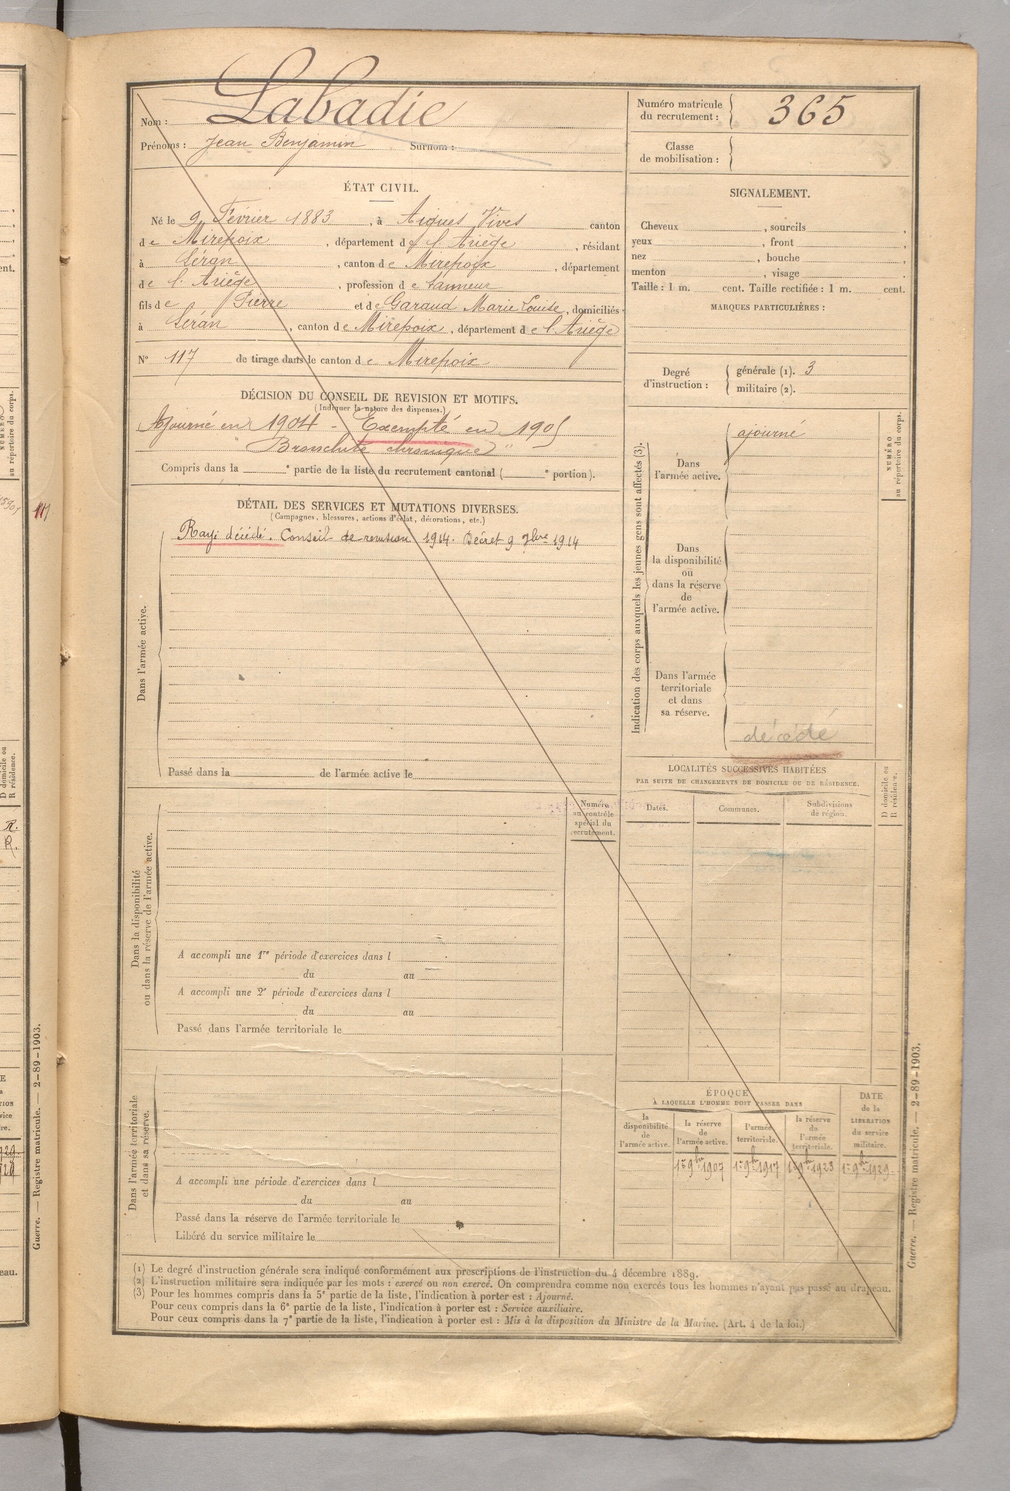 Nom : Labadie
Prénoms : Jean Benjamin Surnom :
Numéro matricule du recrutement : 365
Classe de mobilisation :
ÉTAT CIVIL.
Né le 9 Février 1883, à Aigues Vives canton
de Mirepoix, département de l'Ariège, résidant
à Léran, canton de Mirepoix, département
de l'Ariège, profession de tanneur
fils de Pierre et de Garaud Marie Louise, domiciliés
à Léran, canton de Mirepoix, département de l'Ariège
N° 117 de tirage dans le canton de Mirepoix
DÉCISION DU CONSEIL DE REVISION ET MOTIFS.
(Indiquer la nature des dispenses.)
Ajourné en 1904 - Exempté en 1905
"Bronchite chronique"
Compris dans la ° partie de la liste du recrutement cantonal ( ° portion).
DÉTAIL DES SERVICES ET MUTATIONS DIVERSES.
(Campagnes, blessures, actions d'éclat, décorations, etc.)
Rayé décédé. Conseil de revision 1914. Décret 9 7bre 1914
Dans l'armée active.
Passé dans la de l'armée active le
Dans la disponibilité
ou dans la réserve de l'armée active.
Numéro
au contrôle
spécial du
recrutement.
A accompli une 1re période d'exercices dans l
du au
A accompli une 2e période d'exercices dans l
du au
Passé dans l'armée territoriale le
Dans l'armée territoriale
et dans sa réserve.
A accompli une période d'exercices dans l
du au
Passé dans la réserve de l'armée territoriale le
Libéré du service militaire le
SIGNALEMENT.
Cheveux , sourcils ,
yeux , front ,
nez , bouche ,
menton , visage .
Taille : 1 m. cent. Taille rectifiée : 1 m. cent.
MARQUES PARTICULIÈRES :
Degré d'instruction :
générale (1). 3
militaire (2).
Indication des corps auxquels les jeunes gens sont affectés (3).
NUMÉRO
au répertoire du corps.
Dans
l'armée active.
ajourné
Dans
la disponibilité
ou
dans la réserve
de
l'armée active.
Dans l'armée
territoriale
et dans
sa réserve.
décédé
LOCALITÉS SUCCESSIVES HABITÉES
PAR SUITE DE CHANGEMENTS DE DOMICILE OU DE RÉSIDENCE.
Dates. Communes. Subdivisions
de région.
D domicile ou
R résidence.
ÉPOQUE
À LAQUELLE L'HOMME DOIT PASSER DANS
DATE
de la
LIBÉRATION
du service
militaire.
la
disponibilité
de
l'armée active.
la réserve
de
l'armée active.
l'armée
territoriale.
la réserve
de
l'armée
territoriale.
1er 9bre 1907 1er 9bre 1917 1er 9bre 1923 1er 9bre 1929
(1) Le degré d'instruction générale sera indiqué conformément aux prescriptions de l'instruction du 4 décembre 1889.
(2) L'instruction militaire sera indiquée par les mots : exercé ou non exercé. On comprendra comme non exercés tous les hommes n'ayant pas passé au drapeau.
(3) Pour les hommes compris dans la 5e partie de la liste, l'indication à porter est : Ajourné.
Pour ceux compris dans la 6e partie de la liste, l'indication à porter est : Service auxiliaire.
Pour ceux compris dans la 7e partie de la liste, l'indication à porter est : Mis à la disposition du Ministre de la Marine. (Art. 4 de la loi.)
Guerre. — Registre matricule. — 2-89-1903.
Guerre. — Registre matricule. — 2-89-1903.